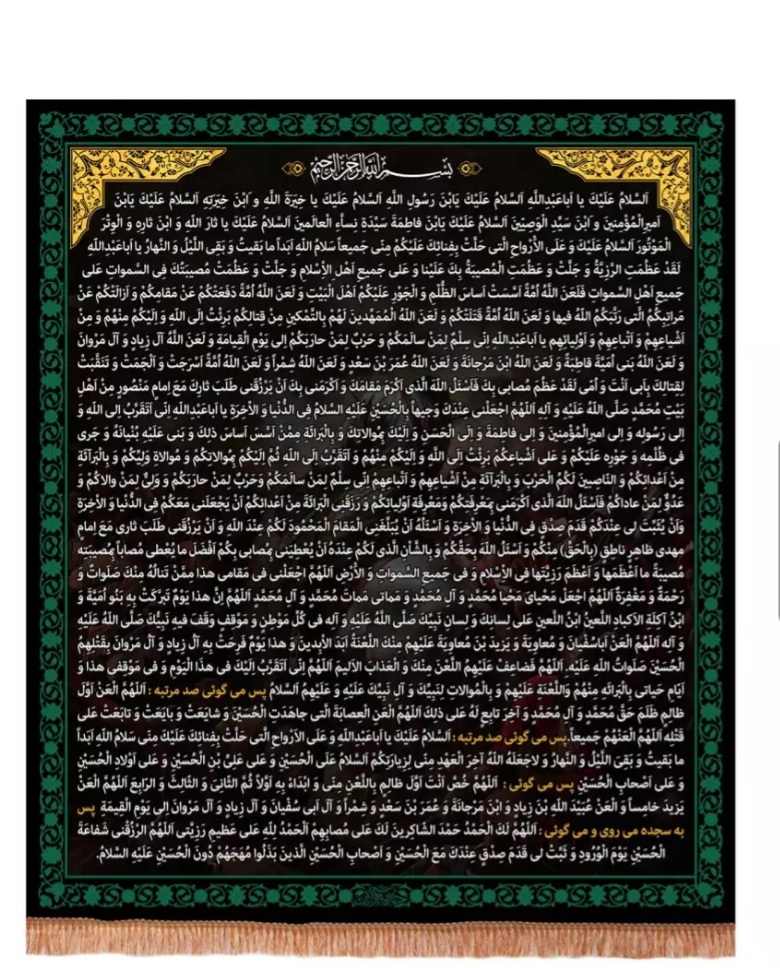 بسم الله الرحمن الرحیم
اَلسَّلامُ عَلَیْكَ یا اَباعَبْدِاللَّهِ اَلسَّلامُ عَلَیْكَ یَابْنَ رَسُولِ اللَّهِ اَلسَّلامُ عَلَیْكَ یا خِیَرَةَ اللَّهِ و َابْنَ خِیَرَتِهِ اَلسَّلامُ عَلَیْكَ یَابْنَ
اَمیرِالْمُؤْمِنینَ و َابْنَ سَیِّدِ الْوَصِیّینَ اَلسَّلامُ عَلَیْكَ یَابْنَ فاطِمَةَ سَیِّدَةِ نِساَّءِ الْعالَمینَ اَلسَّلامُ عَلَیْكَ یا ثارَ اللَّهِ وَ ابْنَ ثارِهِ وَ الْوِتْرَ
الْمَوْتُورَ اَلسَّلامُ عَلَیْكَ وَ عَلَی الْأَرْواحِ الَّتی حَلَّتْ بِفِنائِكَ عَلَیْكُمْ مِنّی جَمیعاً سَلامُ اللَّهِ اَبَداً ما بَقیتُ وَ بَقِیَ اللَّیْلُ وَ النَّهارُ یا اَباعَبْدِاللَّهِ
لَقَدْ عَظُمَتِ الرَّزِیَّةُ وَ جَلَّتْ وَ عَظُمَتِ الْمُصیبَةُ بِكَ عَلَیْنا وَ عَلی جَمیعِ اَهْلِ الْاِسْلامِ وَ جَلَّتْ وَ عَظُمَتْ مُصیبَتُكَ فِی السَّمواتِ عَلی
جَمیعِ اَهْلِ السَّمواتِ فَلَعَنَ اللَّهُ اُمَّةً اَسَّسَتْ اَساسَ الظُّلْمِ وَ الْجَوْرِ عَلَیْكُمْ اَهْلَ الْبَیْتِ وَ لَعَنَ اللَّهُ اُمَّةً دَفَعَتْكُمْ عَنْ مَقامِكُمْ وَ اَزالَتْكُمْ عَنْ
مَراتِبِكُمُ الَّتی رَتَّبَكُمُ اللَّهُ فیها وَ لَعَنَ اللَّهُ اُمَّةً قَتَلَتْكُمْ وَ لَعَنَ اللَّهُ الْمُمَهِّدینَ لَهُمْ بِالتَّمْكینِ مِنْ قِتالِكُمْ بَرِئْتُ اِلَی اللَّهِ وَ اِلَیْكُمْ مِنْهُمْ وَ مِنْ
اَشْیاعِهِمْ وَ اَتْباعِهِمْ وَ اَوْلِیائِهِم یا اَباعَبْدِاللَّهِ اِنّی سِلْمٌ لِمَنْ سالَمَكُمْ وَ حَرْبٌ لِمَنْ حارَبَكُمْ اِلی یَوْمِ الْقِیامَةِ وَ لَعَنَ اللَّهُ آلَ زِیادٍ وَ آلَ مَرْوانَ
وَ لَعَنَ اللَّهُ بَنی اُمَیَّةَ قاطِبَةً وَ لَعَنَ اللَّهُ ابْنَ مَرْجانَةَ وَ لَعَنَ اللَّهُ عُمَرَ بْنَ سَعْدٍ وَ لَعَنَ اللَّهُ شِمْراً وَ لَعَنَ اللَّهُ اُمَّةً اَسْرَجَتْ وَ اَلْجَمَتْ وَ تَنَقَّبَتْ
لِقِتالِكَ بِاَبی اَنْتَ وَ اُمّی لَقَدْ عَظُمَ مُصابی بِكَ فَاَسْئَلُ اللَّهَ الَّذی اَكْرَمَ مَقامَكَ وَ اَكْرَمَنی بِكَ اَنْ یَرْزُقَنی طَلَبَ ثارِكَ مَعَ اِمامٍ مَنْصُورٍ مِنْ اَهْلِ
بَیْتِ مُحَمَّدٍ صَلَّی اللَّهُ عَلَیْهِ وَ آلِهِ اَللّهُمَّ اجْعَلْنی عِنْدَكَ وَجیهاً بِالْحُسَیْنِ عَلَیْهِ السَّلامُ فِی الدُّنْیا وَ الْآخِرَةِ یا اَباعَبْدِاللَّهِ اِنّی اَتَقَرَّبُ اِلی اللَّهِ وَ
اِلی رَسُولِهِ وَ اِلی امیرِالْمُؤْمِنینَ وَ اِلی فاطِمَةَ وَ اِلَی الْحَسَنِ وَ اِلَیْكَ بِمُوالاتِكَ وَ بِالْبَرائَةِ مِمَّنْ اَسَّسَ اَساسَ ذلِكَ وَ بَنی عَلَیْهِ بُنْیانَهُ وَ جَری
فی ظُلْمِهِ وَ جَوْرِهِ عَلَیْكُمْ وَ عَلی اَشْیاعِكُمْ بَرِئْتُ اِلَی اللَّهِ وَ اِلَیْكُمْ مِنْهُمْ وَ اَتَقَرَّبُ اِلَی اللَّهِ ثُمَّ اِلَیْكُمْ بِمُوالاتِكُمْ وَ مُوالاةِ وَلِیِّكُمْ وَ بِالْبَرائَةِ
مِنْ اَعْدائِكُمْ وَ النّاصِبینَ لَكُمُ الْحَرْبَ وَ بِالْبَرائَةِ مِنْ اَشْیاعِهِمْ وَ اَتْباعِهِمْ اِنّی سِلْمٌ لِمَنْ سالَمَكُمْ وَ حَرْبٌ لِمَنْ حارَبَكُمْ وَ وَلِیٌّ لِمَنْ والاكُمْ وَ
عَدُوٌّ لِمَنْ عاداكُمْ فَاَسْئَلُ اللَّهَ الَّذی اَكْرَمَنی بِمَعْرِفَتِكُمْ وَ مَعْرِفَةِ اَوْلِیائِكُمْ وَ رَزَقَنِی الْبَرائَةَ مِنْ اَعْدائِكُمْ اَنْ یَجْعَلَنی مَعَكُمْ فِی الدُّنْیا وَ الْآخِرَةِ
وَ اَنْ یُثَبِّتَ لی عِنْدَكُمْ قَدَمَ صِدْقٍ فِی الدُّنْیا وَ الْآخِرَةِ وَ اَسْئَلُهُ اَنْ یُبَلِّغَنِی الْمَقامَ الْمَحْمُودَ لَكُمْ عِنْدَ اللَّهِ وَ اَنْ یَرْزُقَنی طَلَبَ ثاری مَعَ اِمامٍ
مهدی ظاهِرٍ ناطِقٍ (بِالْحَقِّ) مِنْكُمْ وَ اَسْئَلُ اللَّهَ بِحَقِّكُمْ وَ بِالشَّأْنِ الَّذی لَكُمْ عِنْدَهُ اَنْ یُعْطِیَنی بِمُصابی بِكُمْ اَفْضَلَ ما یُعْطی مُصاباً بِمُصیبَتِهِ
مُصیبَةً ما اَعْظَمَها وَ اَعْظَمَ رَزِیَّتَها فِی الْاِسْلامِ وَ فی جَمیعِ السَّمواتِ وَ الْأَرْضِ اَللّهُمَّ اجْعَلْنی فی مَقامی هذا مِمَّنْ تَنالُهُ مِنْكَ صَلَواتٌ وَ
رَحْمَةٌ وَ مَغْفِرَةٌ اَللّهُمَّ اجْعَلْ مَحْیایَ مَحْیا مُحَمَّدٍ وَ آلِ مُحَمَّدٍ وَ مَماتی مَماتَ مُحَمَّدٍ وَ آلِ مُحَمَّدٍ اَللّهُمَّ اِنَّ هذا یَوْمٌ تَبَرَّكَتْ بِهِ بَنُو اُمَیَّةَ وَ
ابْنُ آكِلَةِ الْاَكبادِ اللَّعینُ ابْنُ اللَّعینِ عَلی لِسانِكَ وَ لِسانِ نَبِیِّكَ صَلَّی اللَّهُ عَلَیْهِ وَ آلِهِ فی كُلِّ مَوْطِنٍ وَ مَوْقِفٍ وَقَفَ فیهِ نَبِیُّكَ صَلَّی اللَّهُ عَلَیْهِ
وَ آلِهِ اَللّهُمَّ الْعَنْ اَباسُفْیانَ وَ مُعاوِیَةَ وَ یَزیدَ بْنَ مُعاوِیَةَ عَلَیْهِمْ مِنْكَ اللَّعْنَةُ اَبَدَ الْآبِدینَ وَ هذا یَوْمٌ فَرِحَتْ بِهِ آلُ زِیادٍ وَ آلُ مَرْوانَ بِقَتْلِهِمُ
الْحُسَیْنَ صَلَواتُ اللَّهِ عَلَیْهِ. اَللّهُمَّ فَضاعِفْ عَلَیْهِمُ اللَّعْنَ مِنْكَ وَ الْعَذابَ الْاَلیمَ اَللّهُمَّ اِنّی اَتَقَرَّبُ اِلَیْكَ فی هذَا الْیَوْمِ وَ فی مَوْقِفی هذا وَ
اَیّامِ حَیاتی بِالْبَرائَهِ مِنْهُمْ وَ اللَّعْنَةِ عَلَیْهِمْ وَ بِالْمُوالاتِ لِنَبِیِّكَ وَ آلِ نَبِیِّكَ عَلَیْهِ وَ عَلَیْهِمُ اَلسَّلامُ پس می گوئی صد مرتبه : اَللّهُمَّ الْعَنْ اَوَّلَ
ظالِمٍ ظَلَمَ حَقَّ مُحَمَّدٍ وَ آلِ مُحَمَّدٍ وَ آخِرَ تابِعٍ لَهُ عَلی ذلِكَ اَللّهُمَّ الْعَنِ الْعِصابَةَ الَّتی جاهَدَتِ الْحُسَیْنَ وَ شایَعَتْ وَ بایَعَتْ وَ تابَعَتْ عَلی
قَتْلِهِ اَللّهُمَّ الْعَنْهُمْ جَمیعاً.پس می گوئی صد مرتبه : اَلسَّلامُ عَلَیْكَ یا اَباعَبْدِاللَّهِ وَ عَلَی الْاَرْواحِ الَّتی حَلَّتْ بِفِنائِكَ عَلَیْكَ مِنّی سَلامُ اللَّهِ اَبَداً
ما بَقیتُ وَ بَقِیَ اللَّیْلُ وَ النَّهارُ وَ لاجَعَلَهُ اللَّهُ آخِرَ الْعَهْدِ مِنّی لِزِیارَتِكُمْ اَلسَّلامُ عَلَی الْحُسَیْنِ وَ عَلی عَلِیِّ بْنِ الْحُسَیْنِ وَ عَلی اَوْلادِ الْحُسَیْنِ
وَ عَلی اَصْحابِ الْحُسَیْنِ پس می گوئی : اَللّهُمَّ خُصَّ اَنْتَ اَوَّلَ ظالِمٍ بِاللَّعْنِ مِنّی وَ ابْدَاءْ بِهِ اَوَّلاً ثُمَّ الثّانِیَ وَ الثّالِثَ وَ الرّابِعَ اَللّهُمَّ الْعَنْ
یَزیدَ خامِساً وَ الْعَنْ عُبَیْدَ اللَّهِ بْنَ زِیادٍ وَ ابْنَ مَرْجانَةَ وَ عُمَرَ بْنَ سَعْدٍ وَ شِمْراً وَ آلَ اَبی سُفْیانَ وَ آلَ زِیادٍ وَ آلَ مَرْوانَ اِلی یَوْمِ الْقِیمَةِ پس
به سجده می روی و می گوئی : اَللّهُمَّ لَكَ الْحَمْدُ حَمْدَ الشّاكِرینَ لَكَ عَلی مُصابِهِمْ اَلْحَمْدُ لِلَّهِ عَلی عَظیمِ رَزِیَّتی اَللّهُمَّ ارْزُقْنی شَفاعَةَ
الْحُسَیْنِ یَوْمَ الْوُرُودِ وَ ثَبِّتْ لی قَدَمَ صِدْقٍ عِنْدَكَ مَعَ الْحُسَیْنِ وَ اَصْحابِ الْحُسَیْنِ الَّذینَ بَذَلُوا مُهَجَهُمْ دُونَ الْحُسَیْنِ عَلَیْهِ السَّلامُ.